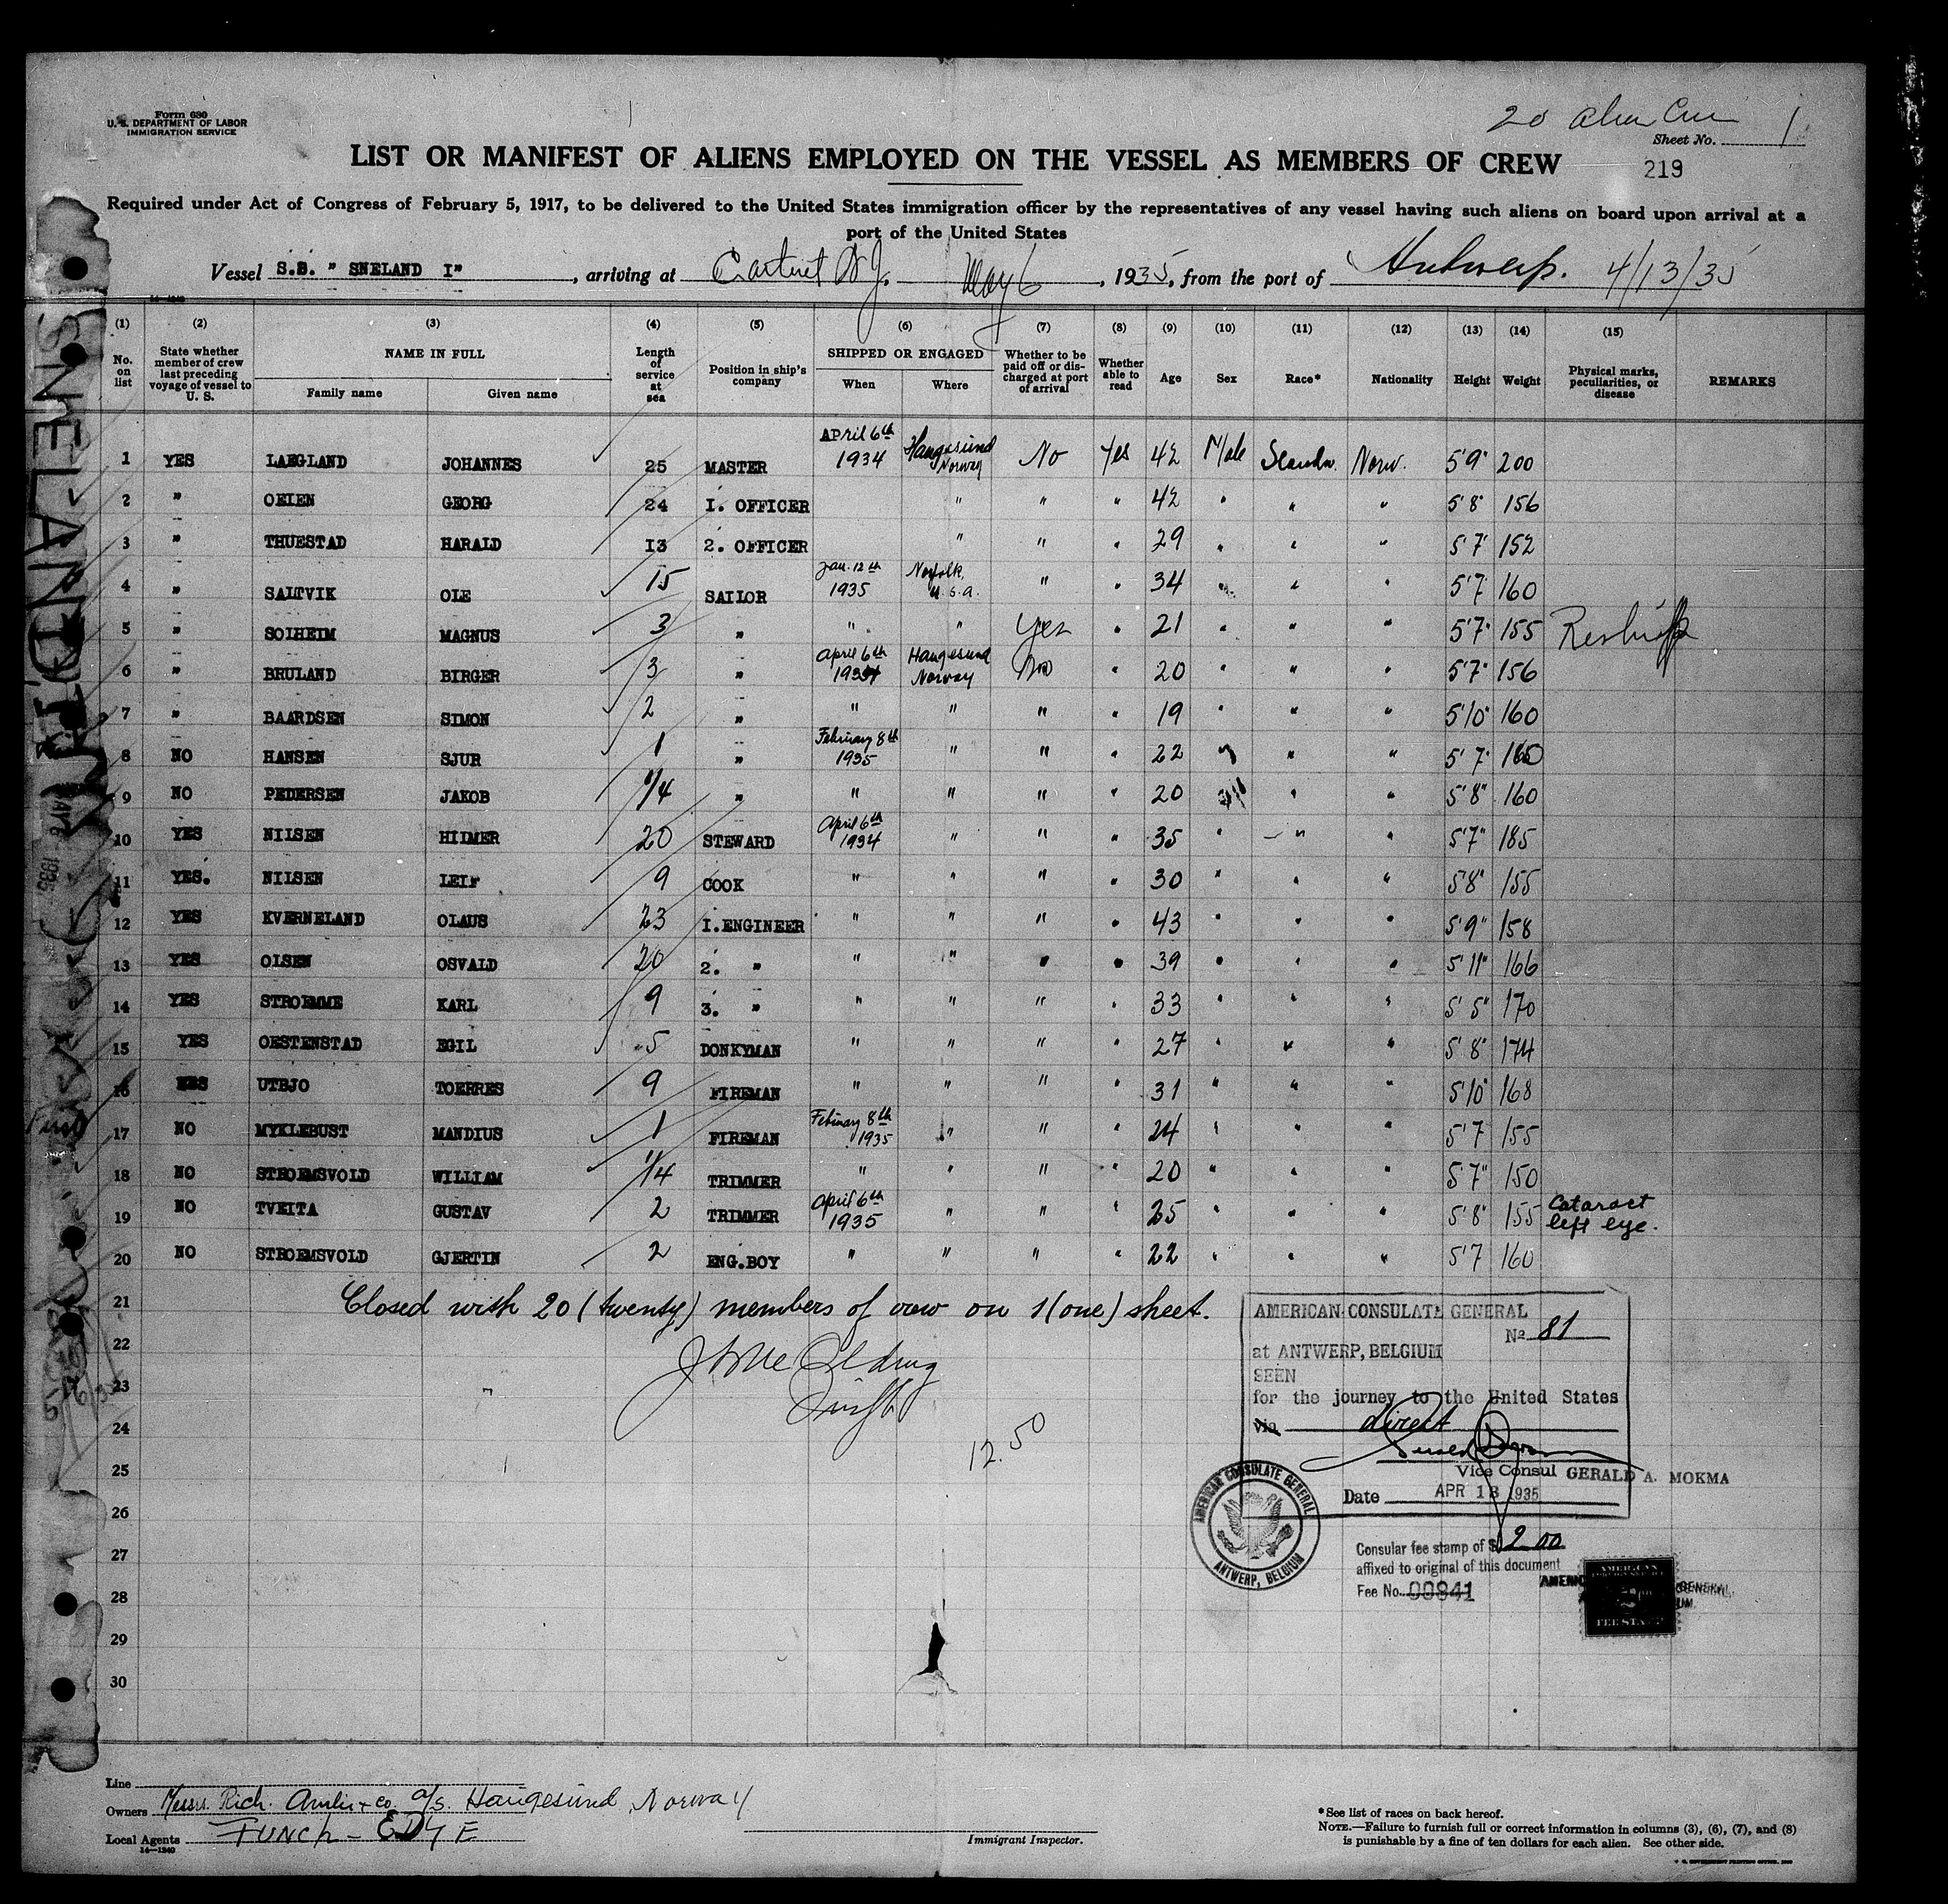 Form 680
U. S. DEPARTMENT OF LABOR
IMMIGRATION SERVICE
20 Alien Crew
Sheet No. 1
LIST OR MANIFEST OF ALIENS EMPLOYED ON THE VESSEL AS MEMBERS OF CREW
219
Required under Act of Congress of February 5, 1917, to be delivered to the United States immigration officer by the representatives of any vessel having such aliens on board upon arrival at a
port of the United States
Vessel S.S. " SNELAND I" , arriving at Carteret N.J., May 6 , 1935, from the port of Antwerp. 4/13/35
14-1240
(1) (2) (3) (4) (5) (6) (7) (8) (9) (10) (11) (12) (13) (14) (15)
No. on list State whether member of crew last preceding voyage of vessel to U. S. NAME IN FULL Family name Given name Length of service at sea Position in ship's company SHIPPED OR ENGAGED When Where Whether to be paid off or discharged at port of arrival Whether able to read Age Sex Race* Nationality Height Weight Physical marks, peculiarities, or disease REMARKS
1 YES LAEGLAND JOHANNES 25 MASTER April 6th 1934 Haugesund Norway No Yes 42 Male Scandn. Norw. 5'9" 200
2 " OEIEN GEORG 24 I. OFFICER " " " 42 " " " 5'8" 156
3 " THUESTAD HARALD I3 2. OFFICER " " " 29 " " " 5'7" 152
4 " SALTVIK OLE 15 SAILOR Jan. 12th 1935 Norfolk, U.S.A. " " 34 " " " 5'7" 160
5 " SOLHEIM MAGNUS 3 " " " Yes " 21 " " " 5'7" 155
6 " BRULAND BIRGER 3 " April 6th 1934 Haugesund Norway No " 20 " " " 5'7" 156
7 " BAARDSEN SIMON 2 " " " " " 19 " " " 5'10" 160
8 NO HANSEN SJUR 1 " February 8th 1935 " " " 22 " " " 5'7" 160
9 NO PEDERSEN JAKOB 1/4 " " " " " 20 " " " 5'8" 160
10 YES NILSEN HILMER 20 STEWARD April 6th 1934 " " " 35 " " " 5'7" 185
11 YES. NILSEN LEIF 9 COOK " " " " 30 " " " 5'8" 155
12 YES KVERNELAND OLAUS 23 I.ENGINEER " " " " 43 " " " 5'9" 158
13 YES OLSEN OSVALD 20 2. " " " " " 39 " " " 5'11" 166
14 YES STROEMME KARL 9 3. " " " " " 33 " " " 5'5" 170
15 YES OESTENSTAD EGIL 5 DONKYMAN " " " " 27 " " " 5'8" 174
16 YES UTBJO TOERRES 9 FIREMAN " " " " 31 " " " 5'10" 168
17 NO MYKLEBUST MANDIUS 1 FIREMAN February 8th 1935 " " " 24 " " " 5'7 155
18 NO STROEMSVOLD WILLIAM 1/4 TRIMMER " " " " 20 " " " 5'7" 150
19 NO TVEITA GUSTAV 2 TRIMMER April 6th 1935 " " " 25 " " " 5'8" 155 Cataract left eye.
20 NO STROEMSVOLD GJERTIN 2 ENG.BOY " " " " 22 " " " 5'7 160
21 Closed with 20 (twenty) members of crew on 1 (one) sheet.
22
23
24
25
26
27
28
29
30
12.50
AMERICAN CONSULATE GENERAL
No 81
at ANTWERP, BELGIUM
SEEN
for the journey to the United States
via direct
Vice Consul GERALD A. MOKMA
Date APR 13 1935
AMERICAN CONSULATE GENERAL
ANTWERP, BELGIUM
Consular fee stamp of $ 2.00
affixed to original of this document
Fee No. 00841
AMERICAN
FEE STAMP
SNELAND I
Line
Owners Messrs. Rich. Amlie & co. a/s. Haugesund Norway
Local Agents FUNCH - EDYE
14-1240
Immigrant Inspector.
*See list of races on back hereof.
NOTE.—Failure to furnish full or correct information in columns (3), (6), (7), and (8)
is punishable by a fine of ten dollars for each alien. See other side.